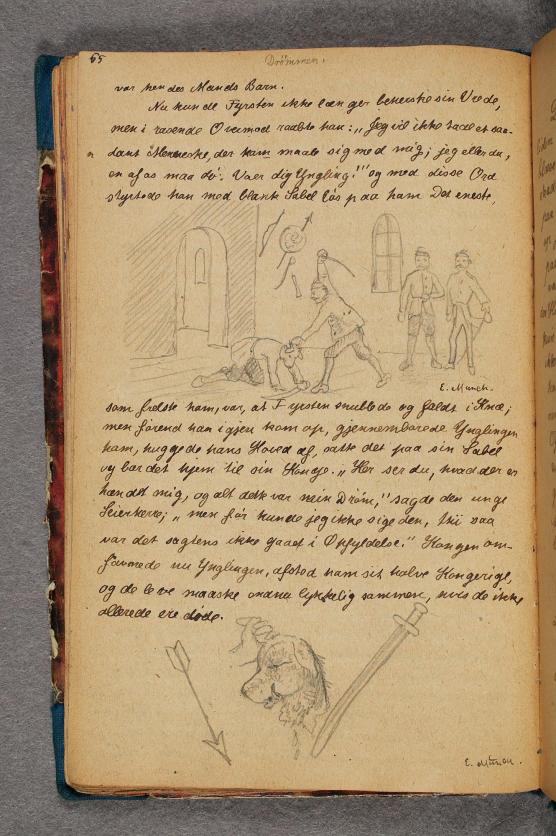 65
Drömmen.
var hendes Mands Barn.
Nu kunde Fyrsten ikke længer beherske sin Vrede,
men i rasende Overmod raabte han: „Jeg vil ikke taale et saa-
dant Menneske, der kam maale sig med mig; jeg eller du,
en af os maa dø. Vaer dig Yngling!" og med disse Ord
styrtede han med blank Sabel løs paa ham Det eneste,
E. Munch.
som frelste ham, var, at Fyrsten snublede og faldt i Knæ;
men førend han igjen kom op, gjennemborede Ynglingen
ham, huggede hans Hoved af, satte det paa sin Sabel
og bar det hjem til sin Konge. „Her ser du, hvad der er
hændet mig, og alt dette var min Dröm," sagde den unge
Seierherre; „men før kunde jeg ikke sige den, thi saa
var det sagtens ikke gaaet i Opfyldelse." Kongen om-
favnede nu Ynglingen, afstod ham sit halve Kongerige,
og de leve maaske endnu lykkelig sammen, hvis de ikke
allerede ere døde.
E. Munch.